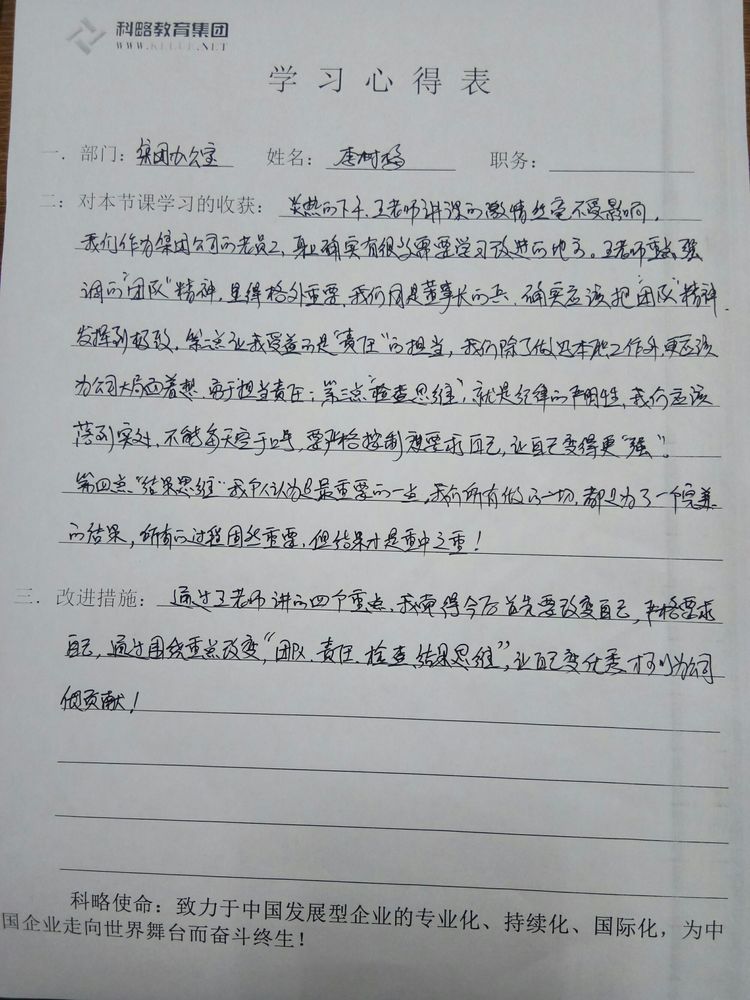 科略教育集团
WWW.KELUE.NET
学习心得表
一．部门：集团办公室 姓名：李树 职务：
二：对本节课学习的收获：炎热的下午，王老师讲课的激情丝毫不受影响，
我们作为集团公司的老员工，身上确实有很多需要学习改进的地方。王老师重点强
调的“团队”精神，显得格外重要，我们同是董事长的兵，确实应该把“团队”精神
发挥到极致，第二点让我受益的是“责任”的担当，我们除了做好本职工作外更应该
为公司大局面着想，勇于担当责任；第三点“检查思维”，就是纪律的严明性，我们应该
落到实处，不能每天空于口号，要严格控制和要求自己，让自己变得更“强”。
第四点“结果思维”我个人认为是最重要的一点，我们所有做的一切，都是为了一个完美
的结果，所有的过程固然重要，但结果才是重中之重！
三．改进措施：通过王老师讲的四个重点，我觉得今后首先要改变自己，严格要求
自己，通过围绕重点改变，“团队、责任、检查、结果思维”，让自己变优秀，才可以为公司
做贡献！
科略使命：致力于中国发展型企业的专业化、持续化、国际化，为中
国企业走向世界舞台而奋斗终生！